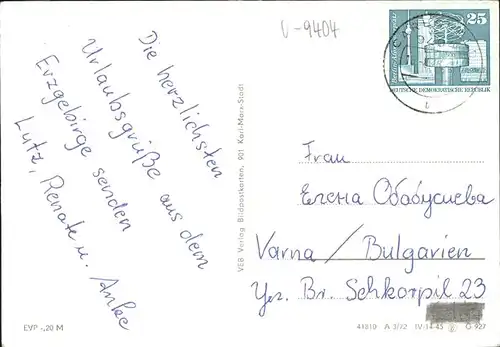 V-9404
25
DEUTSCHE DEMOKRATISCHE REPUBLIK
Die herzlichsten
Urlaubsgrüße aus dem
Erzgebirge senden
Lutz, Renate u. Anke
VEB Verlag Bildpostkarten, 901 Karl-Marx-Stadt
Frau
Елена Сбабусиева
Varna / Bulgarien
Ул. Br. Schkorpil 23
EVP -,20 M
41810 A 3/72 IV-14-45 G 927